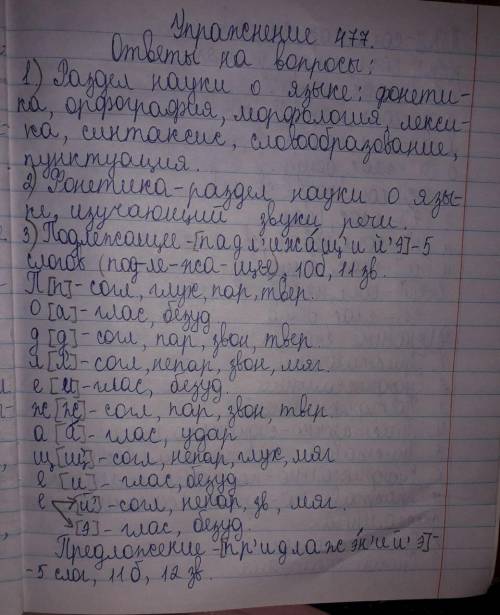 Упражнение 477.
Ответы на вопросы:
1) Раздел науки о языке: фонети-
ка, орфография, морфология, лекси-
ка, синтаксис, словообразование,
пунктуация.
2) Фонетика-раздел науки о язы-
ке, изучающий звуки речи.
3) Подлежащее-[падл'ижа́щ'ий'э]-5
слогов (под-ле-жа-ще-е), 10б, 11 зв.
П[п]-согл, глух, пар, твер.
О[а]-глас, безуд
д[д]-согл, пар, звон, твер
л[л']-согл, непар, звон, мяг.
е[и]-глас, безуд.
ж[ж]-согл, пар, звон, твер.
а[а́]-глас, удар
щ[щ']-согл, непар, глух, мяг
е[и]-глас, безуд
е [й']-согл, непар, зв, мяг.
[э]-глас, безуд.
Предложение-[пр'идлажэ́н'ий'э]-
-5 слог, 11б, 12 зв.